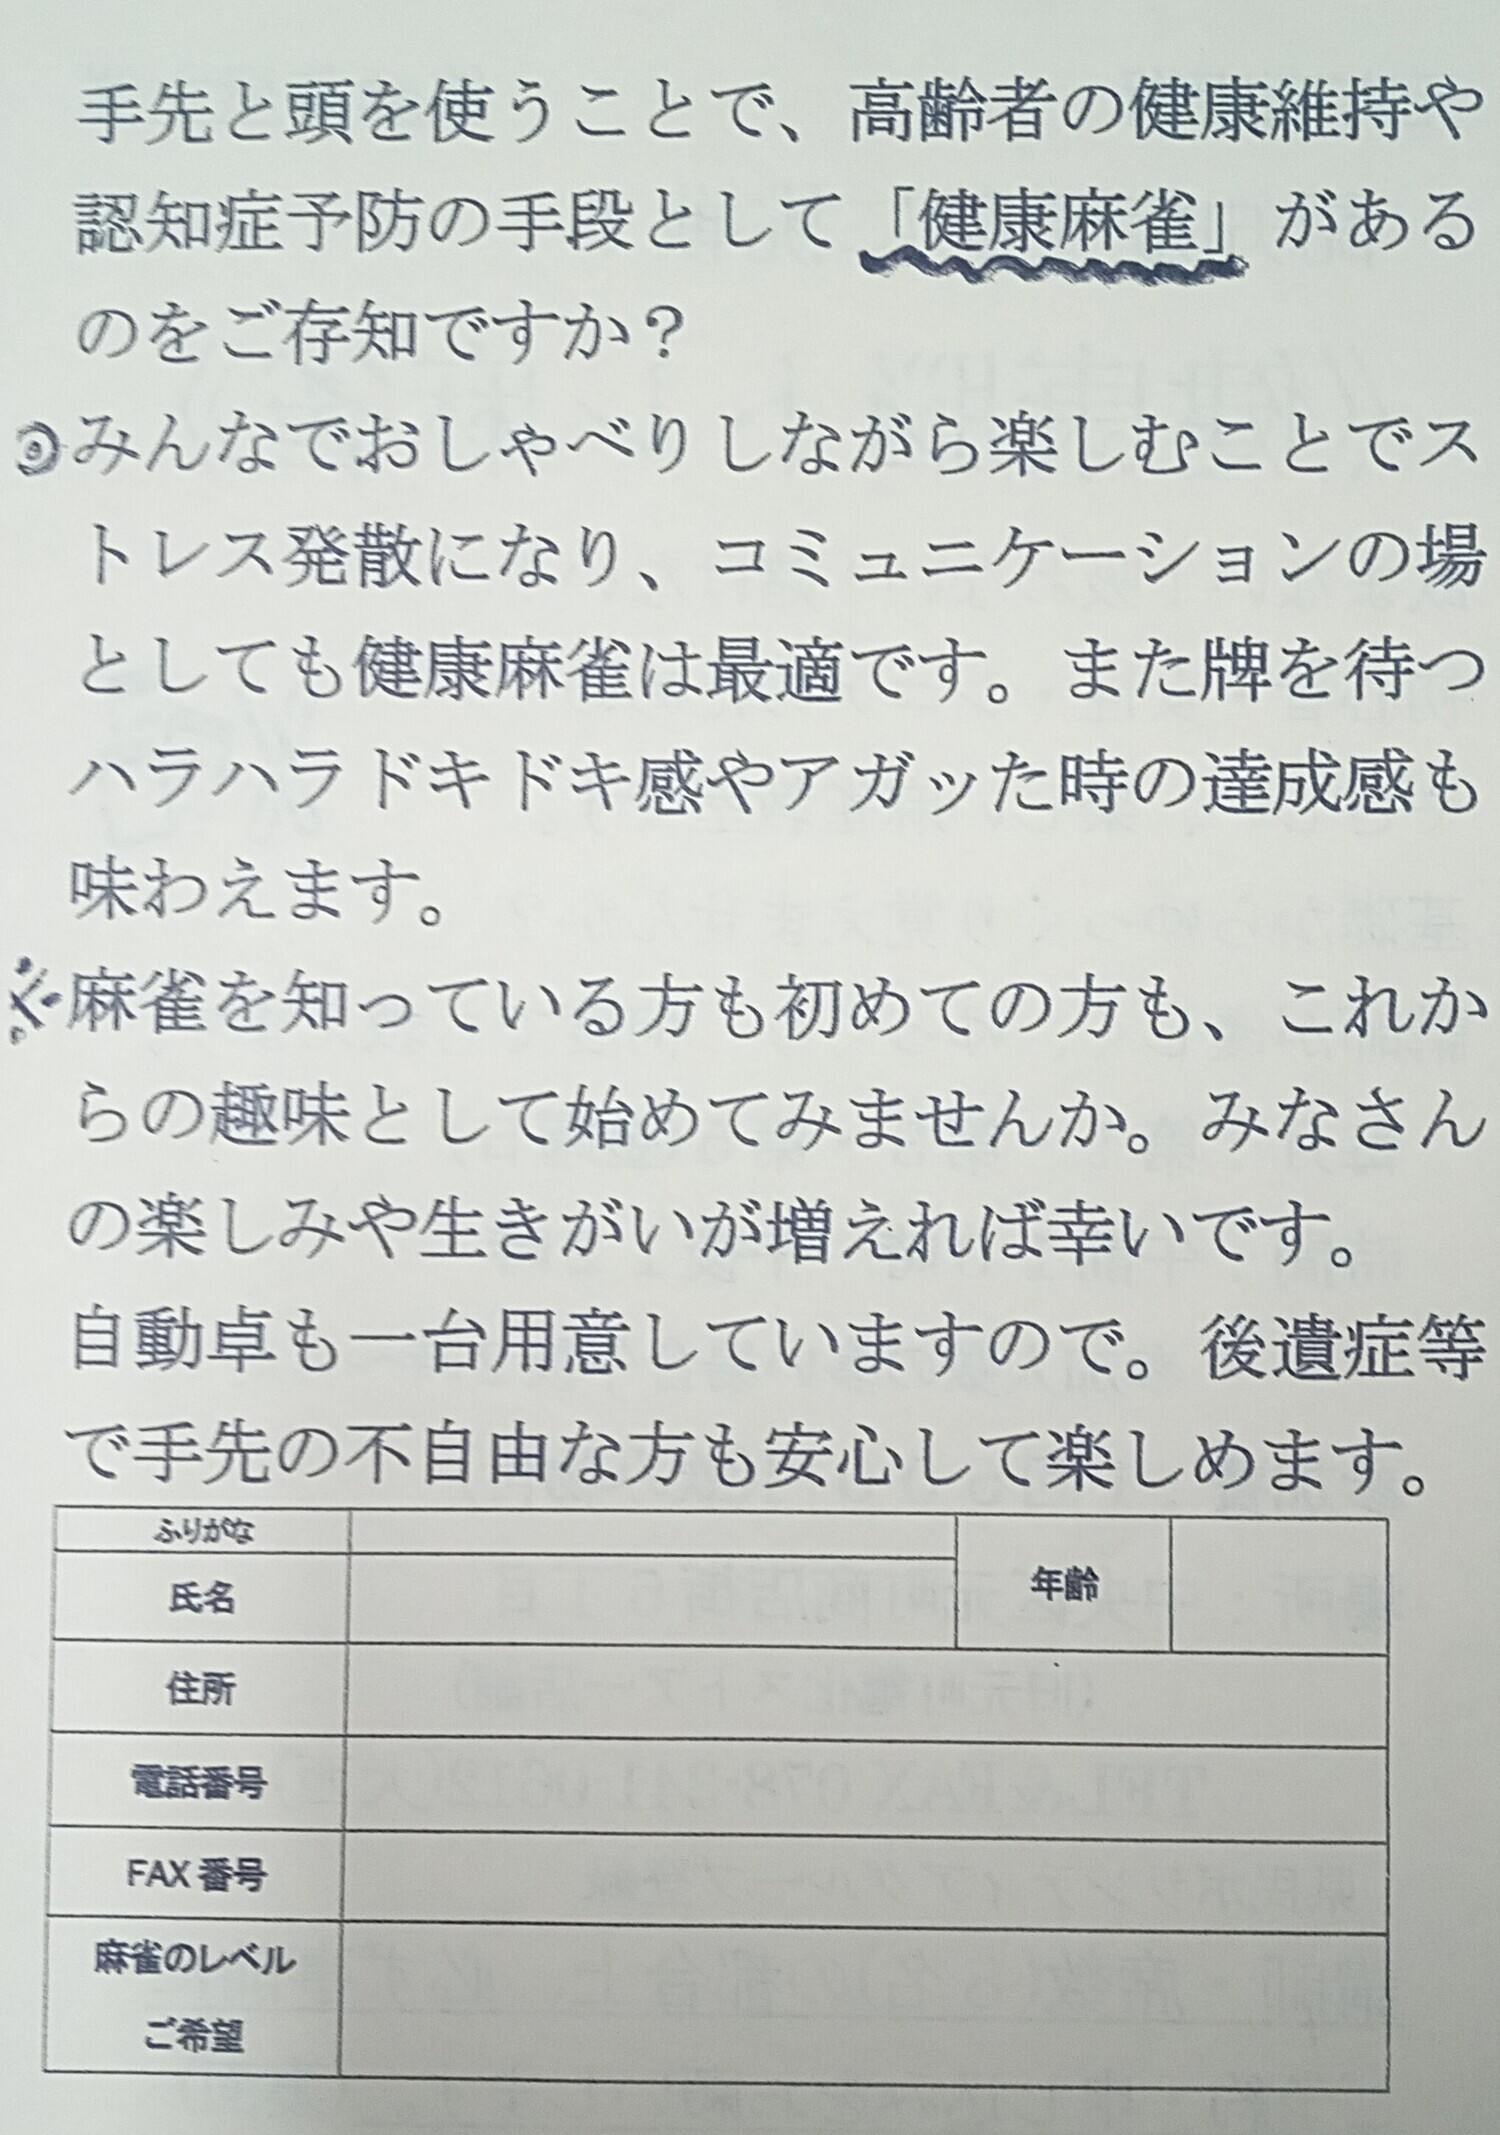 手先と頭を使うことで、高齢者の健康維持や
認知症予防の手段として「健康麻雀」がある
のをご存知ですか？
◎みんなでおしゃべりしながら楽しむことでス
トレス発散になり、コミュニケーションの場
としても健康麻雀は最適です。また牌を待つ
ハラハラドキドキ感やアガッた時の達成感も
味わえます。
※麻雀を知っている方も初めての方も、これか
らの趣味として始めてみませんか。みなさん
の楽しみや生きがいが増えれば幸いです。
自動卓も一台用意していますので。後遺症等
で手先の不自由な方も安心して楽しめます。
ふりがな
氏名
年齢
住所
電話番号
FAX 番号
麻雀のレベル
ご希望